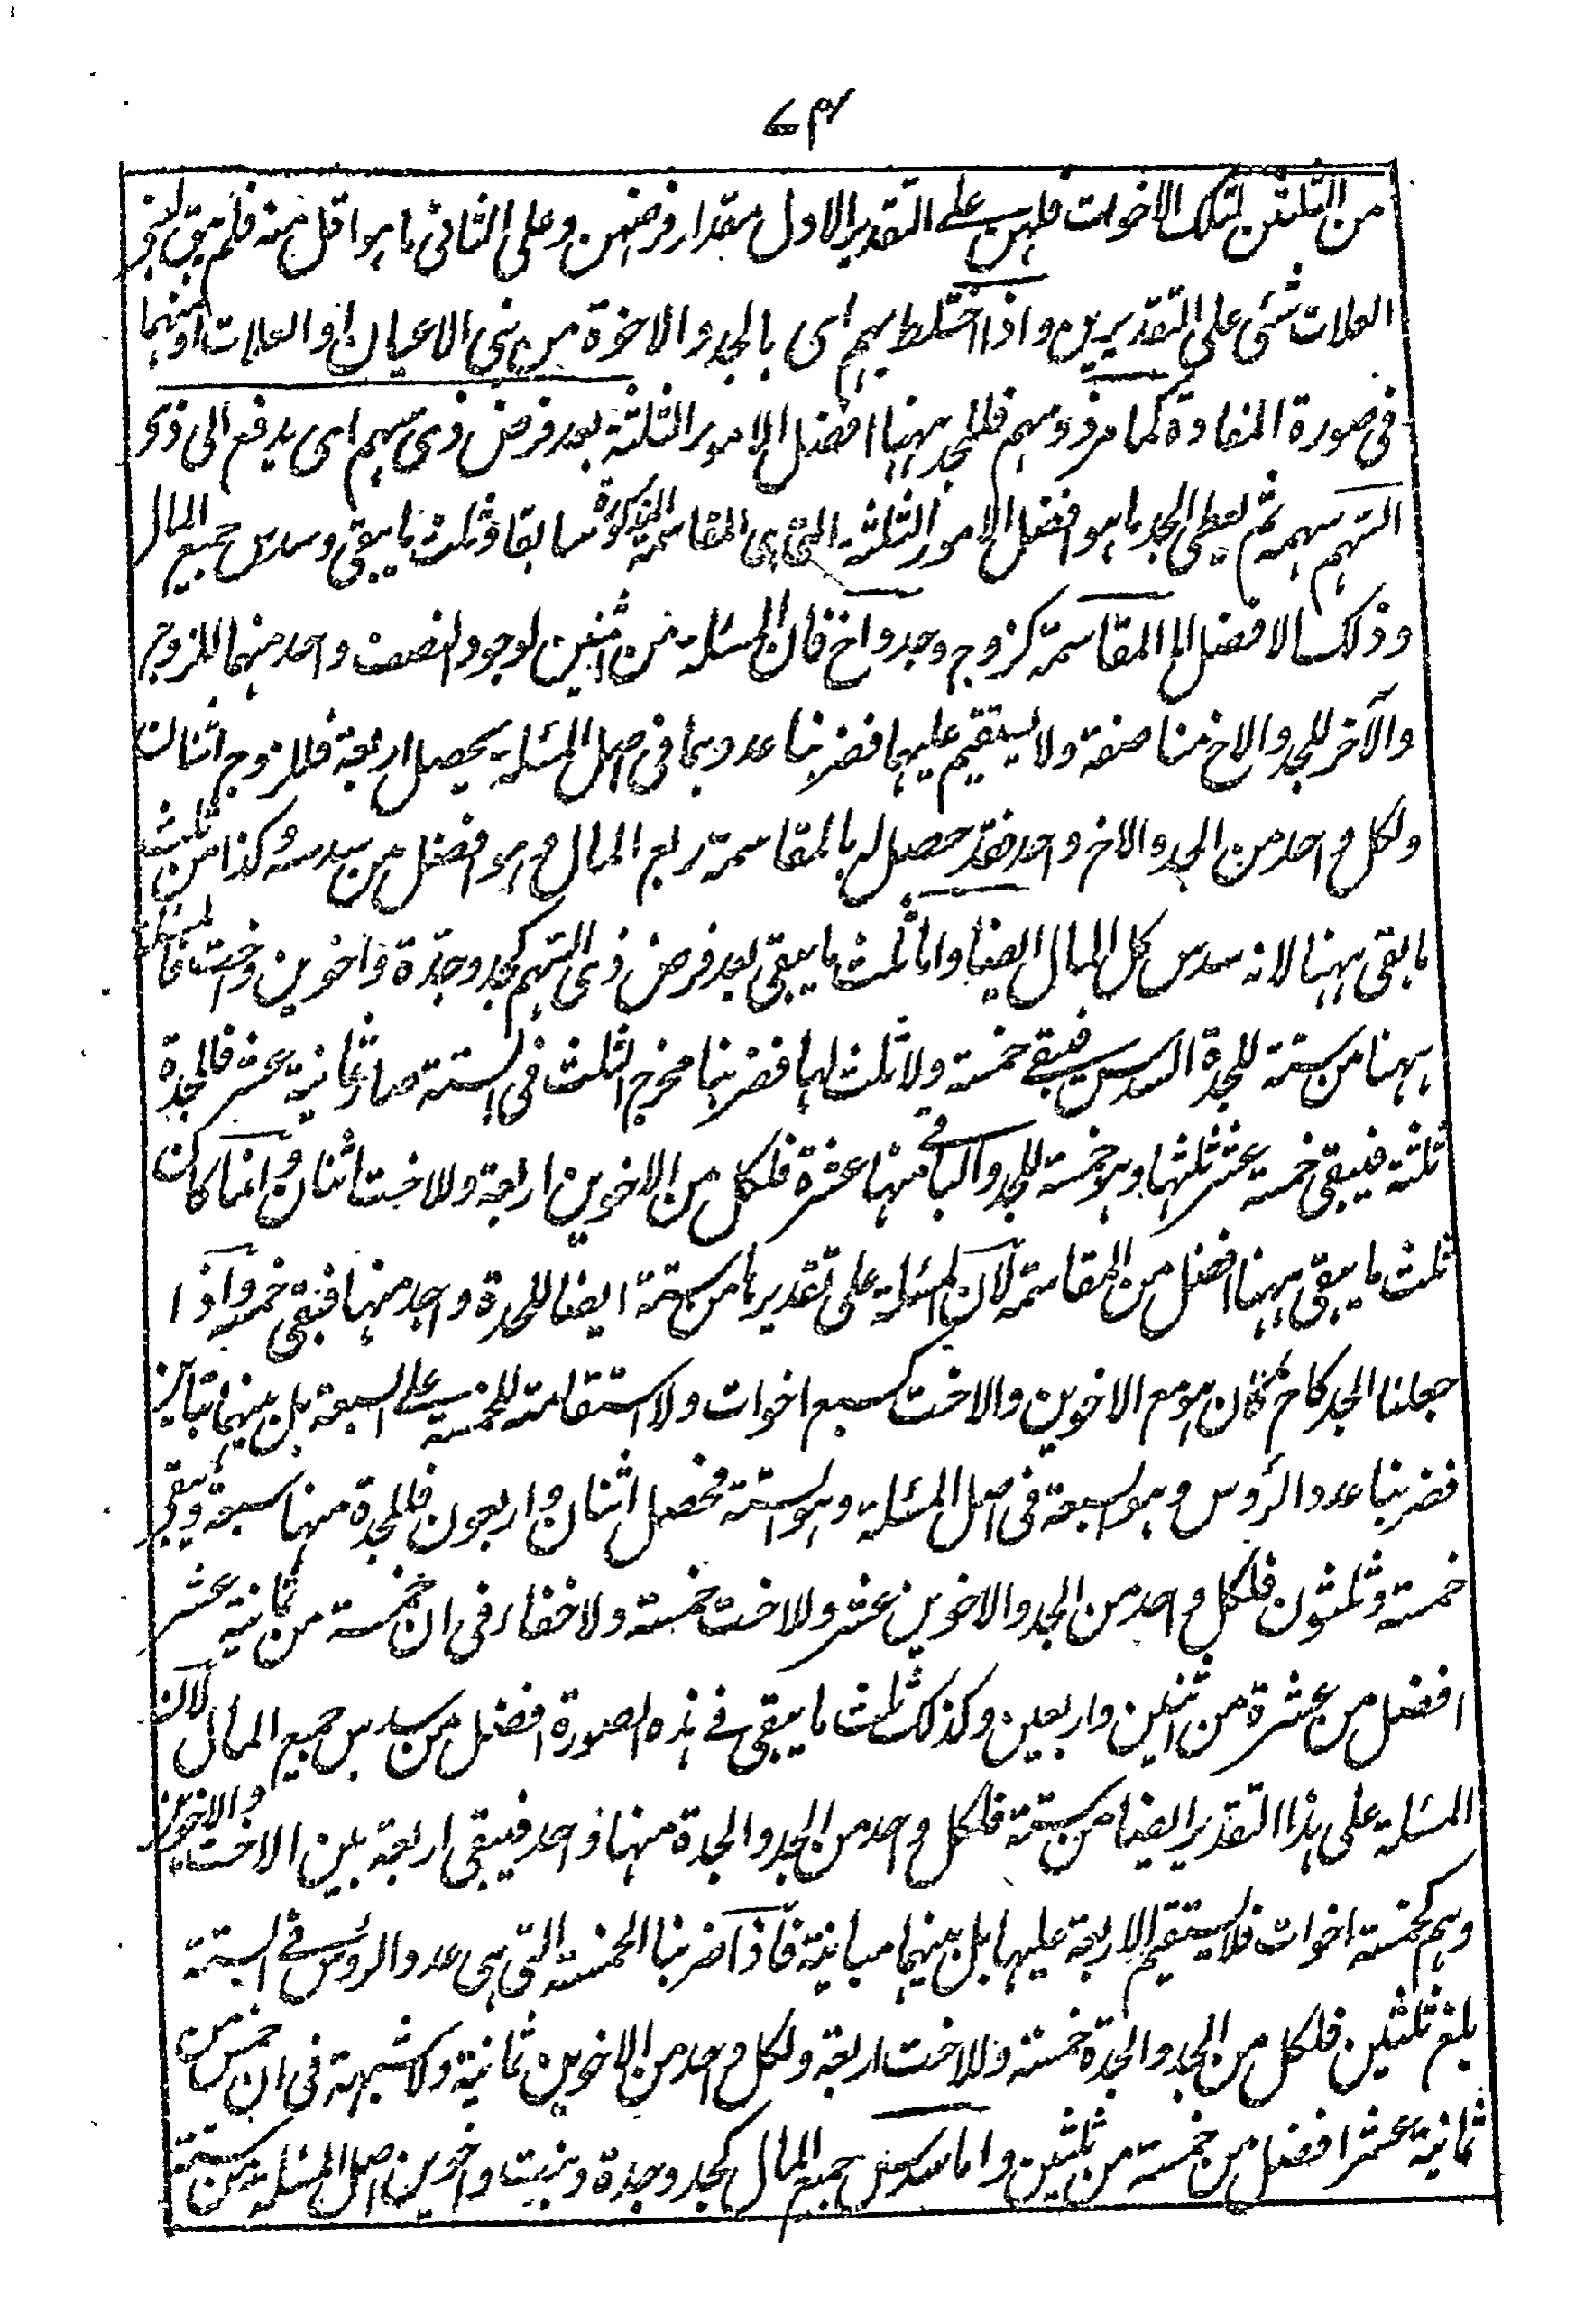 ٧٣
من الثلثين لتلك الاخوات فلهن على التقدير الاول مقدار فرضهن وعلى الثانى ما هو اقل منه فلم يبق لبنى
العلات شئى على التقديرين واذا اختلط بهم اى بالجد والاخوة من بنى الاعيان او العلات او منهما
فى صورة المفادة كما مر ذو سهم فللجد ههنا افضل الامور الثلثة بعد فرض ذى سهم اى يدفع الى ذى
السهم سهمه ثم يعطى الجد ما هو افضل الامور الثلثة التى هى المقاسمة المذكورة سابقا وثلث ما يبقى وسدس جميع المال
وذلك الافضل اما المقاسمة كزوج وجد واخ فان المسئلة من اثنين لوجود النصف واحد منهما للزوج
والآخر للجد والاخ مناصفة ولا يستقيم عليهما فضربنا عددهما فى اصل المسئلة يحصل اربعة فللزوج اثنان
ولكل واحد من الجد والاخ واحد فقد حصل له بالمقاسمة ربع المال وهو افضل من سدسه وكذا من ثلث
ما بقى ههنا لانه سدس كل المال ايضا واما ثلث ما يبقى بعد فرض ذى السهم كجد وجدة واخوين واخت فالمسئلة
ههنا من ستة للجدة السدس فيبقى خمسة ولا ثلث لها فضربنا مخرج الثلث فى الستة صار ثمانية عشر فللجدة
ثلثة فيبقى خمسة عشر ثلثها وهو خمسة للجد والباقى منها عشرة فلكل من الاخوين اربعة وللاخت اثنان وانما كان
ثلث ما يبقى ههنا افضل من المقاسمة لان المسئلة على تقديرها من ستة ايضا للجدة واحد منها فيبقى خمسة واذا
جعلنا الجد كاخ كان هو مع الاخوين والاخت كسبع اخوات ولا استقامة للخمسة على السبعة بل بينهما تباين
فضربنا عدد الرؤس وهو السبعة فى اصل المسئلة وهو الستة فحصل اثنان واربعون فللجدة منها سبعة ويبقى
خمسة وثلثون فلكل واحد من الجد والاخوين عشر وللاخت خمسة ولا خفاء فى ان خمسة من ثمانية عشر
افضل من عشرة من اثنين واربعين وكذلك ثلث ما يبقى فى هذه الصورة افضل من سدس جميع المال لان
المسئلة على هذا التقدير ايضا من ستة فلكل واحد من الجد والجدة منها واحد فيبقى اربعة بين الاخت والاخوين
وهم كخمسة اخوات فلا يستقيم الاربعة عليها بل بينهما مباينة فاذا ضربنا الخمسة التى هى عدد الرؤس فى الستة
بلغ ثلثين فلكل من الجد والجدة خمسة وللاخت اربعة ولكل واحد من الاخوين ثمانية ولا شبهة فى ان خمسة من
ثمانية عشر افضل من خمسة من ثلثين واما سدس جميع المال كجد وجدة وبنت واخوين اصل المسئلة من ستة